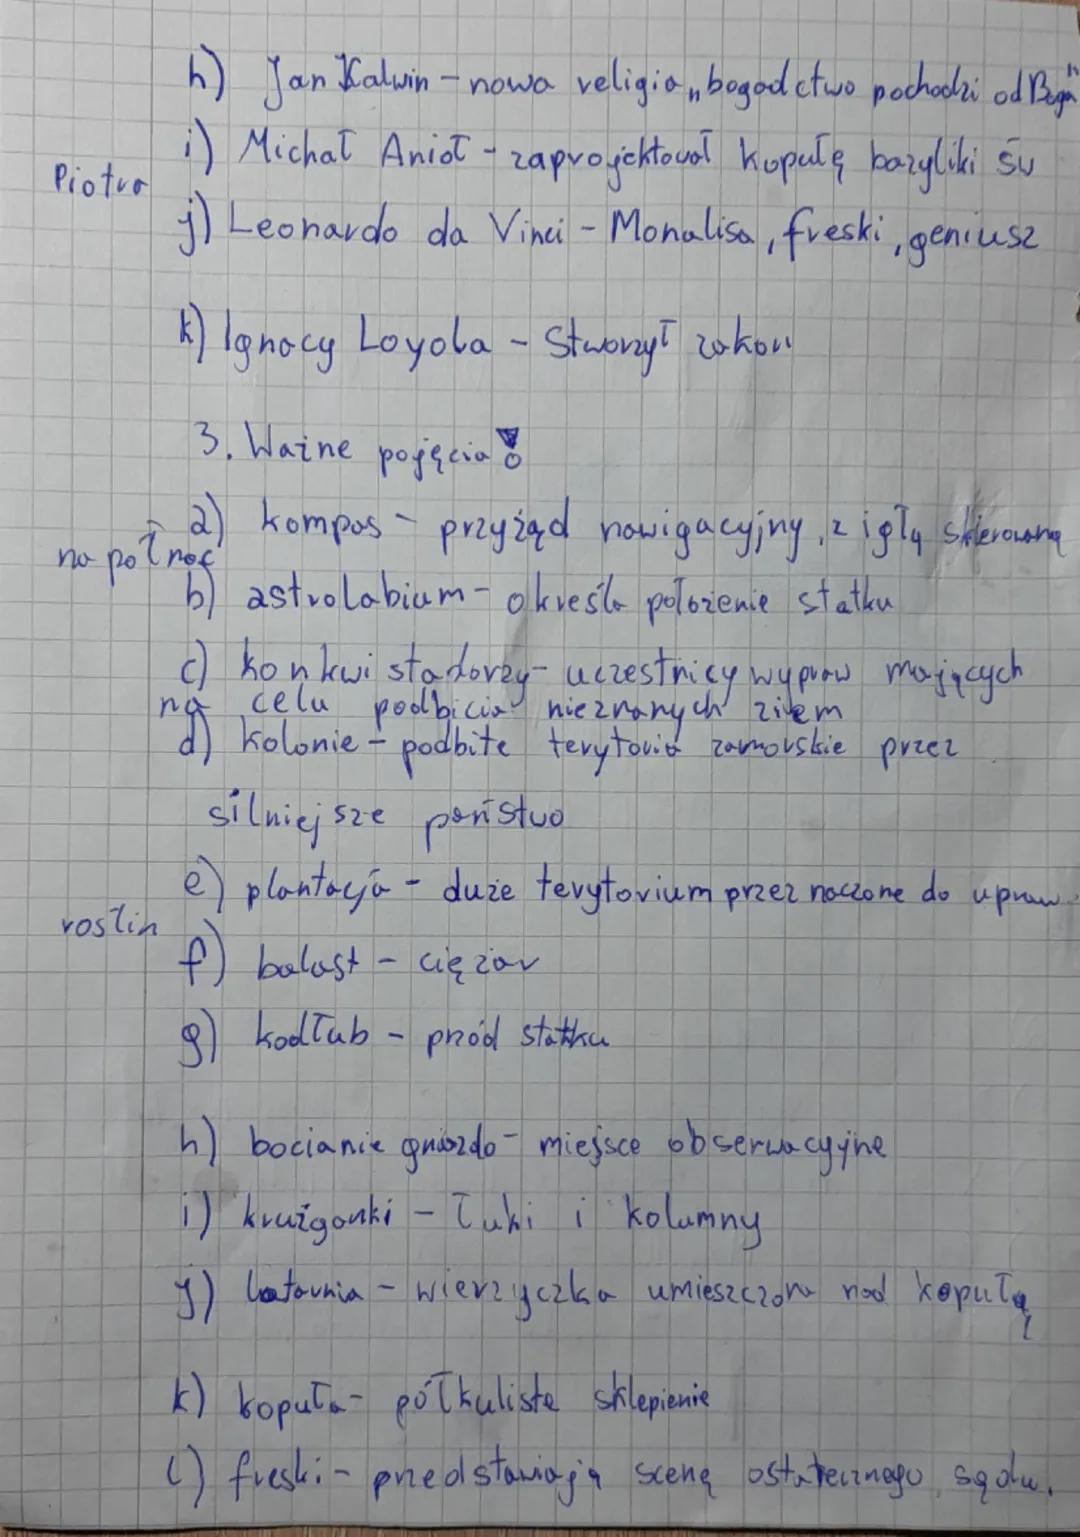 h) Jan Kalwin - nowa religia „bogadctwo pochodzi od Boga"
i) Michał Anioł - zaprojektował kopułę bazyliki św
Piotra
j) Leonardo da Vinci - Monalisa, freski, geniusz
k) Ignacy Loyola - Stworzył zakon
3. Ważne pojęcia!
a) kompas - przyżąd nawigacyjny, z igłą skierowaną
na połnoc
b) astrolabium - określa położenie statku
c) konkwistadorzy - uczestnicy wypraw mających
na celu podbicia nieznanych ziem
d) kolonie - podbite terytoria zamorskie przez
silniejsze państwo
e) plantacja - duże terytorium przeznaczone do upraw
roślin
f) balast - ciężar
g) kodłub - przód statku
h) bocianie gniazdo - miejsce obserwacyjne
i) krużganki - łuki i kolumny
j) latarnia - wierzyczka umieszczona nad kopułą
k) kopuła - półkuliste sklepienie
l) freski - przedstawiają scenę ostatecznego sądu.